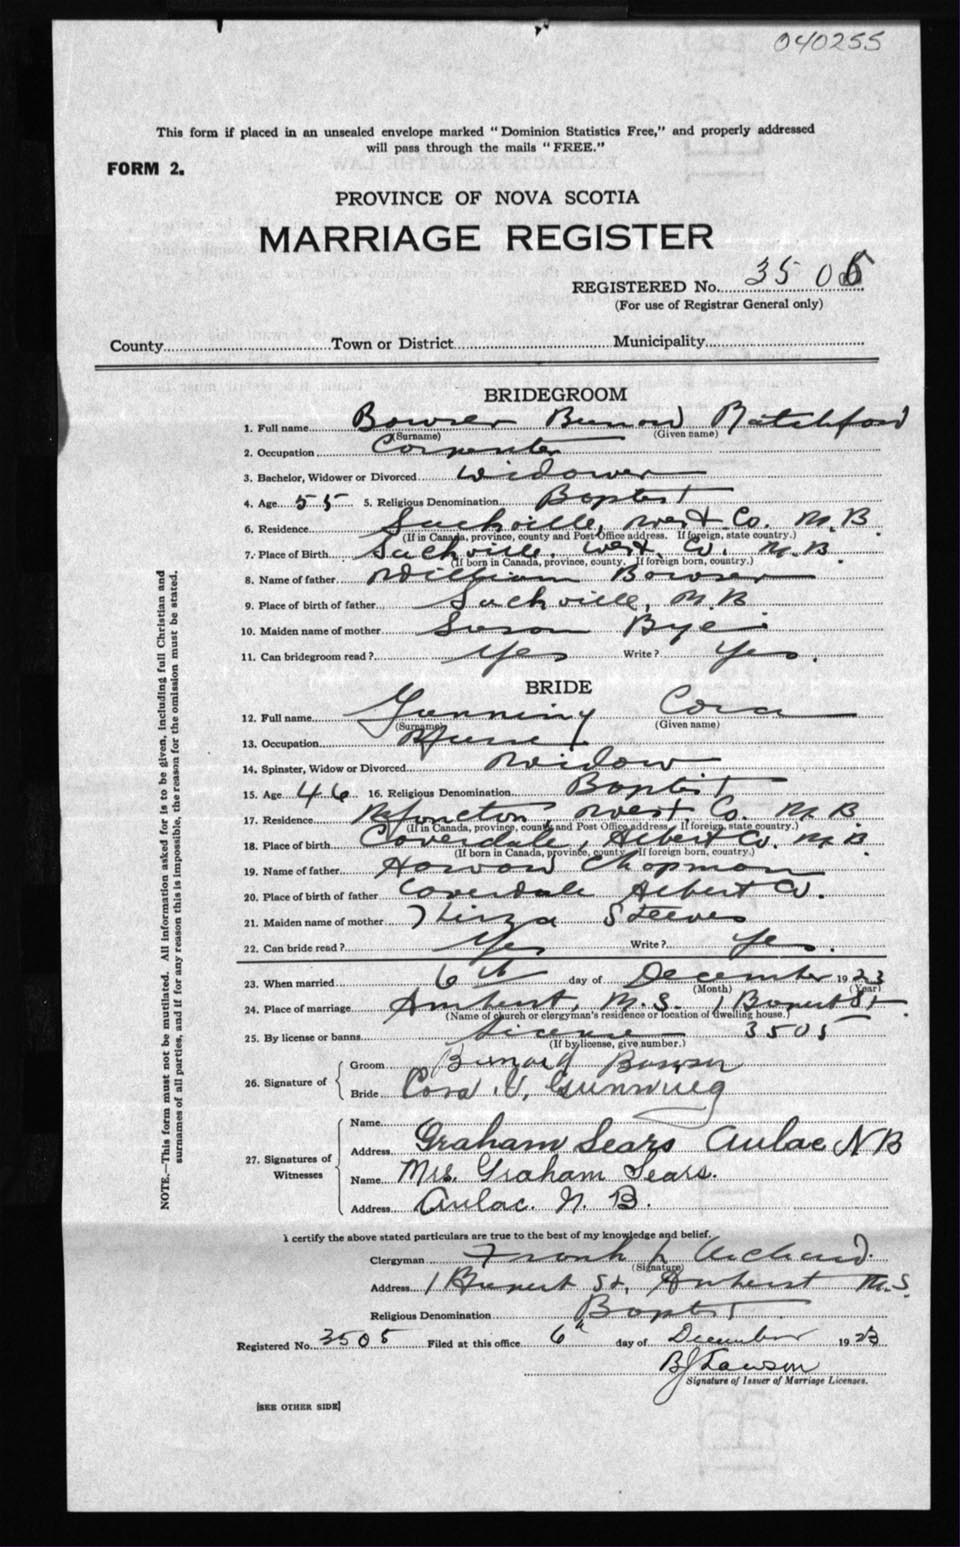 040255
This form if placed in an unsealed envelope marked "Dominion Statistics Free," and properly addressed
will pass through the mails "FREE."
FORM 2.
PROVINCE OF NOVA SCOTIA
MARRIAGE REGISTER
REGISTERED No. 3505
(For use of Registrar General only)
County Town or District Municipality
BRIDEGROOM
1. Full name Bowser Ratchford
(Surname) (Given name)
2. Occupation Carpenter
3. Bachelor, Widower or Divorced Widower
4. Age 55 5. Religious Denomination Baptist
6. Residence Sackville, West. Co. N.B
(If in Canada, province, county and Post Office address. If foreign, state country.)
7. Place of Birth Sackville. West. Co. N.B.
(If born in Canada, province, county. If foreign born, country.)
8. Name of father William Bowser
9. Place of birth of father Sackville, N.B
10. Maiden name of mother Susan Bye
11. Can bridegroom read? Yes Write? Yes.
BRIDE
12. Full name Gunning Cora
(Surname) (Given name)
13. Occupation
14. Spinster, Widow or Divorced Widow
15. Age 46 16. Religious Denomination Baptist
17. Residence West. Co. N B
(If in Canada, province, county and Post Office address. If foreign, state country.)
18. Place of birth Coverdale, Albert Co. N.B
(If born in Canada, province, county. If foreign born, country.)
19. Name of father Chapman
20. Place of birth of father Coverdale Albert Co.
21. Maiden name of mother Thirza Steeves
22. Can bride read? Yes Write? Yes.
23. When married 6th day of December 1923
(Month) (Year)
24. Place of marriage Amherst, N.S. 1 Rupert St
(Name of church or clergyman's residence or location of dwelling house.)
25. By license or banns License 3505
(If by license, give number.)
26. Signature of
Groom Bowser
Bride Cora V. Gunning
27. Signatures of Witnesses
Name
Address Graham Sears Aulac N B
Name Mrs. Graham Sears.
Address Aulac. N. B.
I certify the above stated particulars are true to the best of my knowledge and belief.
Clergyman Frank
(Signature)
Address 1 Rupert St. Amherst N.S.
Religious Denomination Baptist
Registered No. 3505 Filed at this office 6" day of December 1923
Lawson
Signature of Issuer of Marriage Licenses.
[SEE OTHER SIDE]
NOTE.—This form must not be mutilated. All information asked for is to be given, including full Christian and
surnames of all parties, and if for any reason this is impossible, the reason for the omission must be stated.